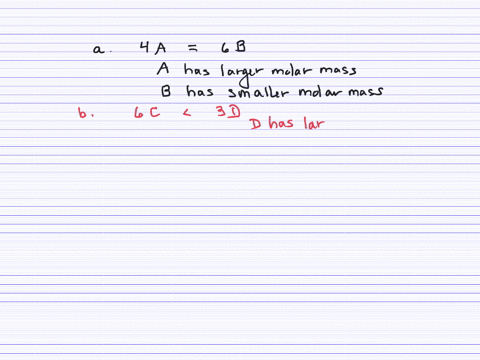 a. 4A = 6B
A has larger molar mass
B has smaller molar mass
b. 6C < 3D
D has lar